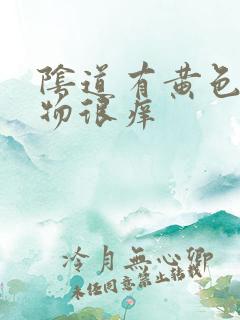 陰道有黄色
物很痒
冷月無心卿
未经同意禁止转载